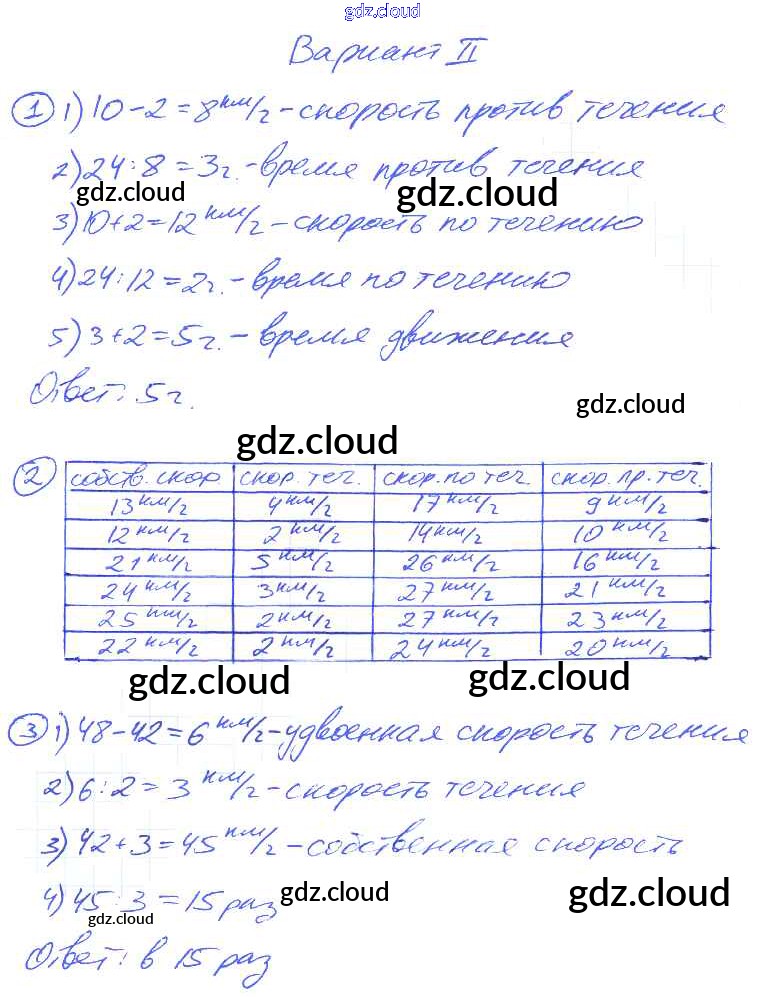 gdz.cloud
Вариант II
1 1) 10-2=8 км/ч - скорость против течения
2) 24:8=3ч. - время против течения
gdz.cloud
gdz.cloud
3) 10+2=12 км/ч - скорость по течению
4) 24:12=2ч. - время по течению
5) 3+2=5ч. - время движения
Ответ: 5ч.
gdz.cloud
gdz.cloud
2 собств. скор. скор. теч. скор. по теч. скор. пр. теч.
13 км/ч 4 км/ч 17 км/ч 9 км/ч
12 км/ч 2 км/ч 14 км/ч 10 км/ч
21 км/ч 5 км/ч 26 км/ч 16 км/ч
24 км/ч 3 км/ч 27 км/ч 21 км/ч
25 км/ч 2 км/ч 27 км/ч 23 км/ч
22 км/ч 2 км/ч 24 км/ч 20 км/ч
gdz.cloud
gdz.cloud
3 1) 48-42=6 км/ч - удвоенная скорость течения
2) 6:2=3 км/ч - скорость течения
3) 42+3=45 км/ч - собственная скорость
4) 45:3=15 раз
gdz.cloud
gdz.cloud
gdz.cloud
Ответ: в 15 раз